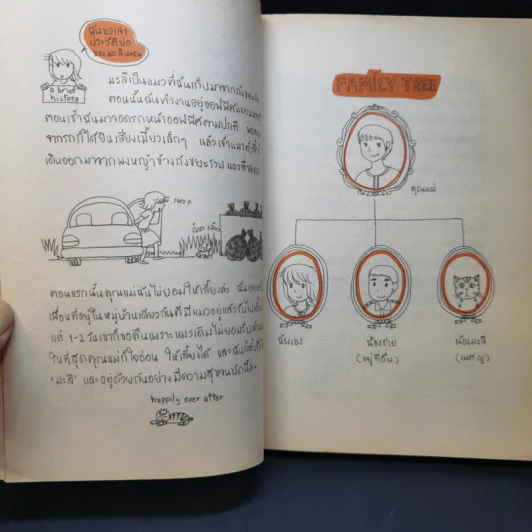 ฉันขอเล่า
ประวัติย่อ
ของมะลิหน่อย
a brief
history
มะลิเป็นแมวที่ฉันเก็บมาจาก
ตอนนั้นฉันทำงานอยู่ออฟฟิศ
ตอนเช้าฉันมาจอดรถหน้าออฟฟิศตามปกติ
จากรถก็ได้ยินเสียงเมี้ยวเล็กๆ แล้วเจ้าแมว
เดินออกมาจากพงหญ้าข้างถังขยะ
ตอนแรกนั้นคุณแม่ฉันไม่ยอมให้เลี้ยงค่ะ
เพื่อนที่อยู่ในหมู่บ้านเดียวกันที่มีแมวอยู่แล้วรับไป
แต่ 1-2 วันเขาก็ขอคืนเพราะแมวเดิมไม่ยอมรับ
ในที่สุดคุณแม่ก็ใจอ่อน ให้เลี้ยงได้
"มะลิ" และอยู่ด้วยกันอย่างมีความสุขจนบัดนี้
happily ever after
FAMILY TREE
คุณแม่
ฉันเอง
น้องชาย
(อยู่ที่อื่น)
น้องมะลิ
(เพศ ญ)